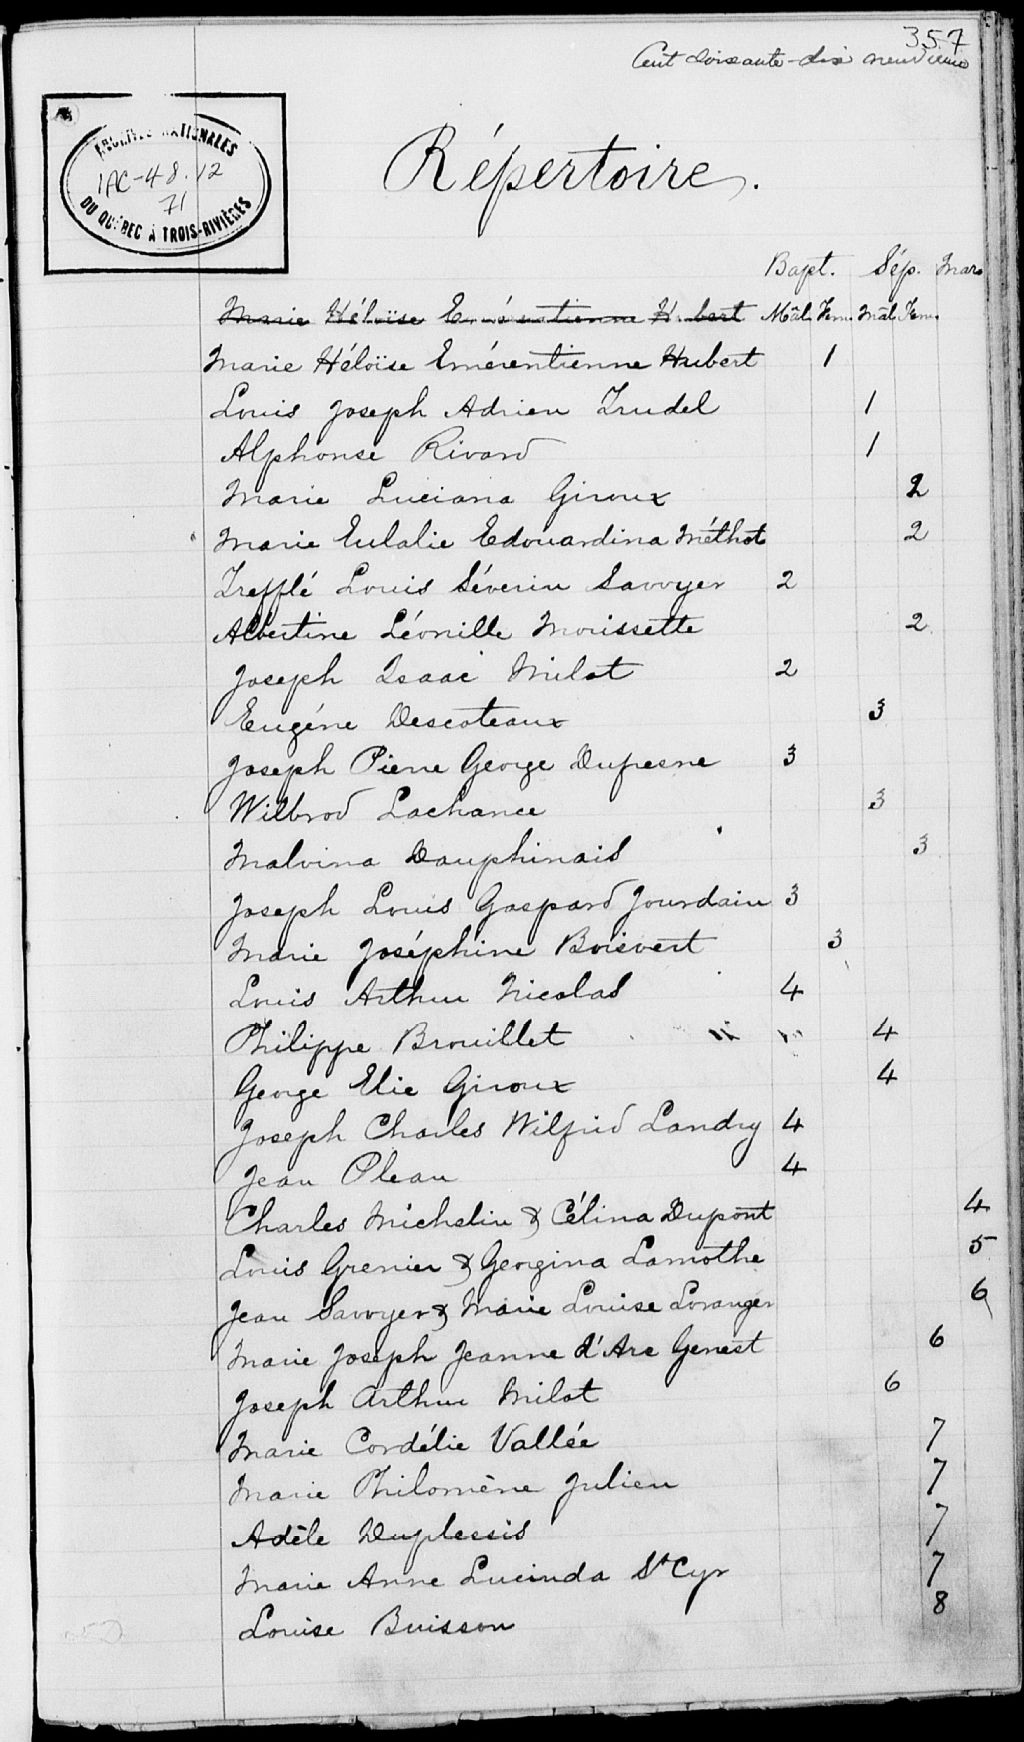 357
Cent soixante-dix neuvième
ARCHIVES NATIONALES
1AC-48.12
71
DU QUÉBEC À TROIS-RIVIÈRES
Répertoire.
Bapt. Sép. Mar.
Marie Héloïse Emérentienne Hubert Mâl. Fem. Mâl. Fem.
Marie Héloïse Emérentienne Hubert 1
Louis Joseph Adrien Trudel 1
Alphonse Rivard 1
Marie Luciana Giroux 2
Marie Eulalie Edouardina Méthot 2
Trefflé Louis Séverin Savoyer 2
Albertine Léonille Morissette 2
Joseph Isaac Milot 2
Eugéne Descoteaux 3
Joseph Pierre George Dufresne 3
Wilbrod Lachance 3
Malvina Dauphinais 3
Joseph Louis Gaspard Jourdain 3
Marie Joséphine Boisvert 3
Louis Arthur Nicolas 4
Philippe Brouillet 4
George Elie Giroux 4
Joseph Charles Wilfrid Landry 4
Jean Pleau 4
Charles Michelin & Célina Dupont 4
Louis Grenier & Georgina Lamothe 5
Jean Savoyer & Marie Louise Loranger 6
Marie Joseph Jeanne d'Arc Genest 6
Joseph Arthur Milot 6
Marie Cordélie Vallée 7
Marie Philomène Julien 7
Adèle Duplessis 7
Marie Anne Lucinda St Cyr 7
Louise Buisson 8